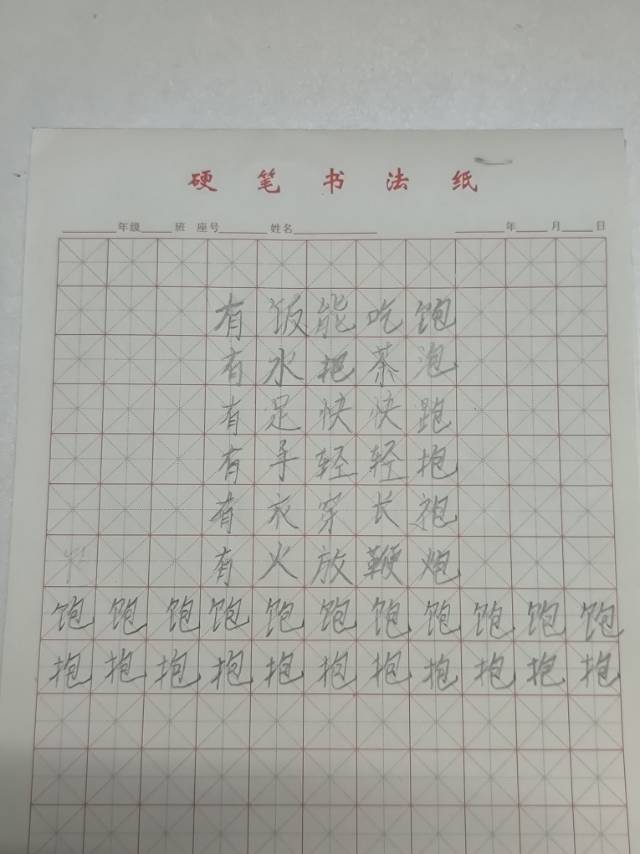 硬笔书法纸
年级 班 座号 姓名 年 月 日
有饭能吃饱
有水把茶泡
有足快快跑
有手轻轻抱
有衣穿长袍
有火放鞭炮
饱饱饱饱饱饱饱饱饱饱饱
抱抱抱抱抱抱抱抱抱抱抱